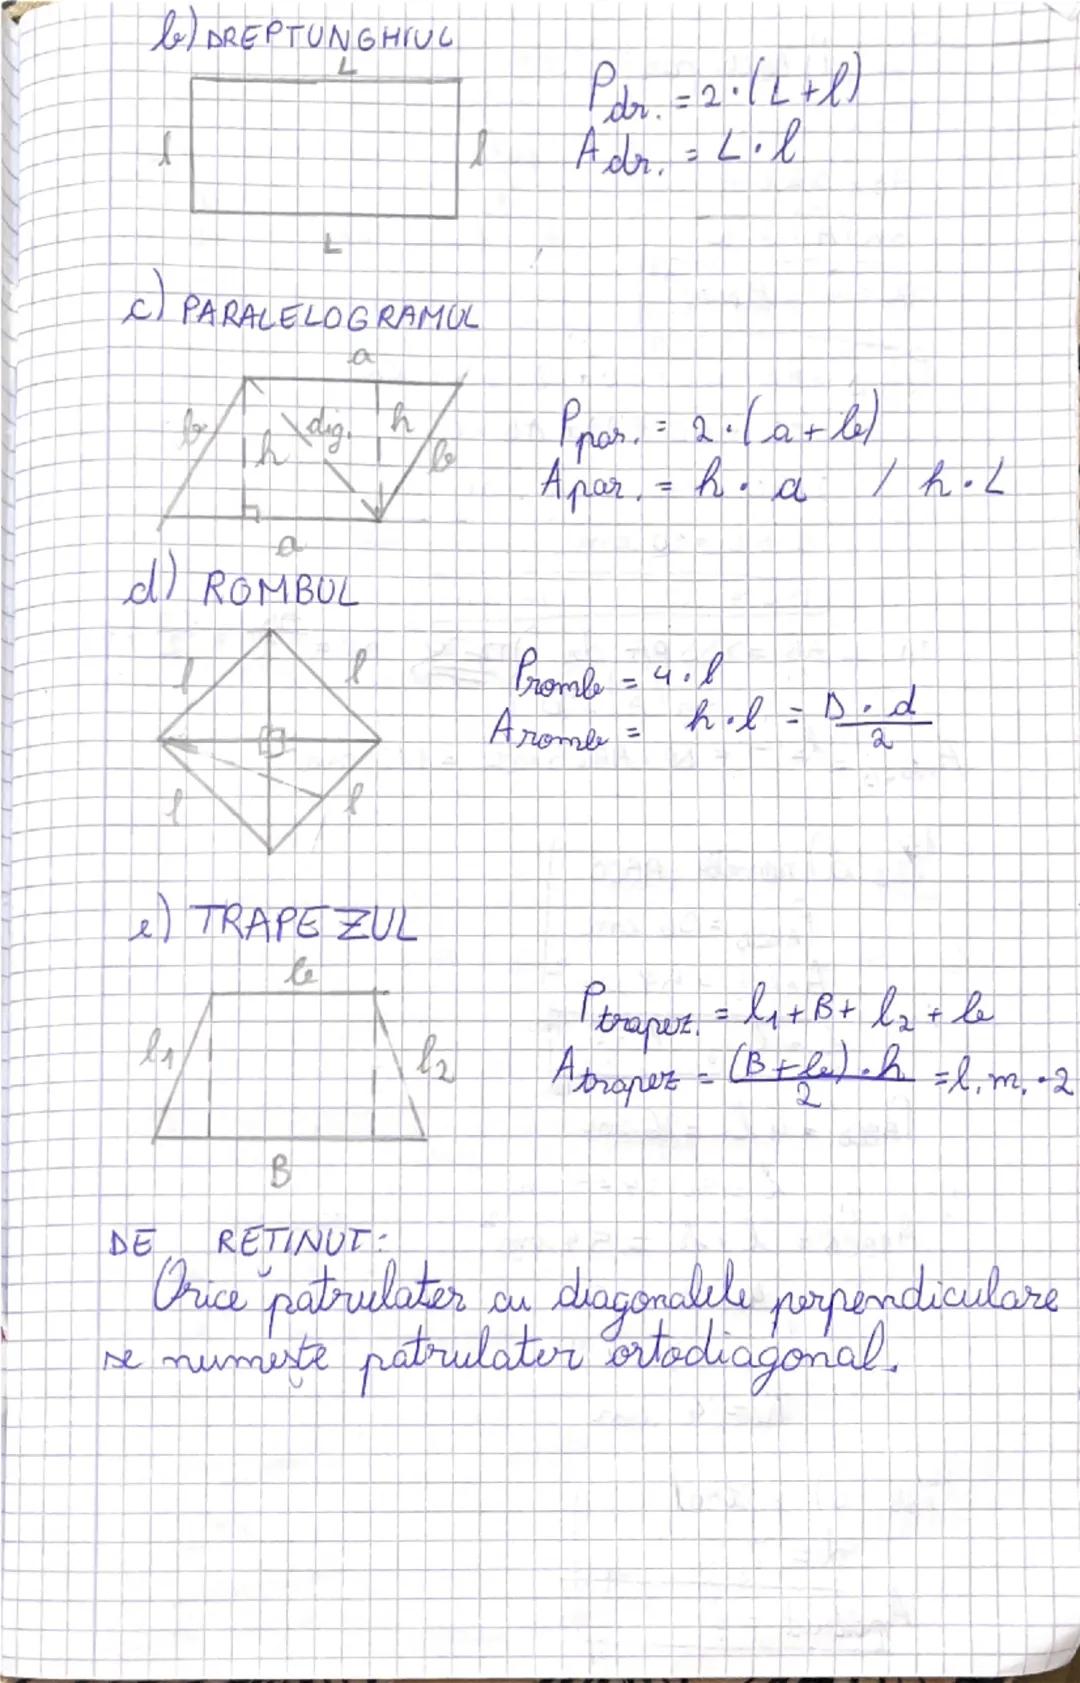 b) DREPTUNGHIUL
L
l
l
L
P dr. = 2·(L+l)
A dr. = L·l
c) PARALELOGRAMUL
a
b
h
dig.
h
b
a
P par. = 2·(a+b)
A par. = h·a / h·L
d) ROMBUL
l
l
l
l
P romb = 4·l
A romb = h·l = D·d/2
e) TRAPEZUL
b
l₁
l₂
B
P trapez. = l₁+B+l₂+b
A trapez = (B+b)·h/2 = l.m.·2
DE REȚINUT:
Orice patrulater cu diagonalele perpendiculare
se numește patrulater ortodiagonal.